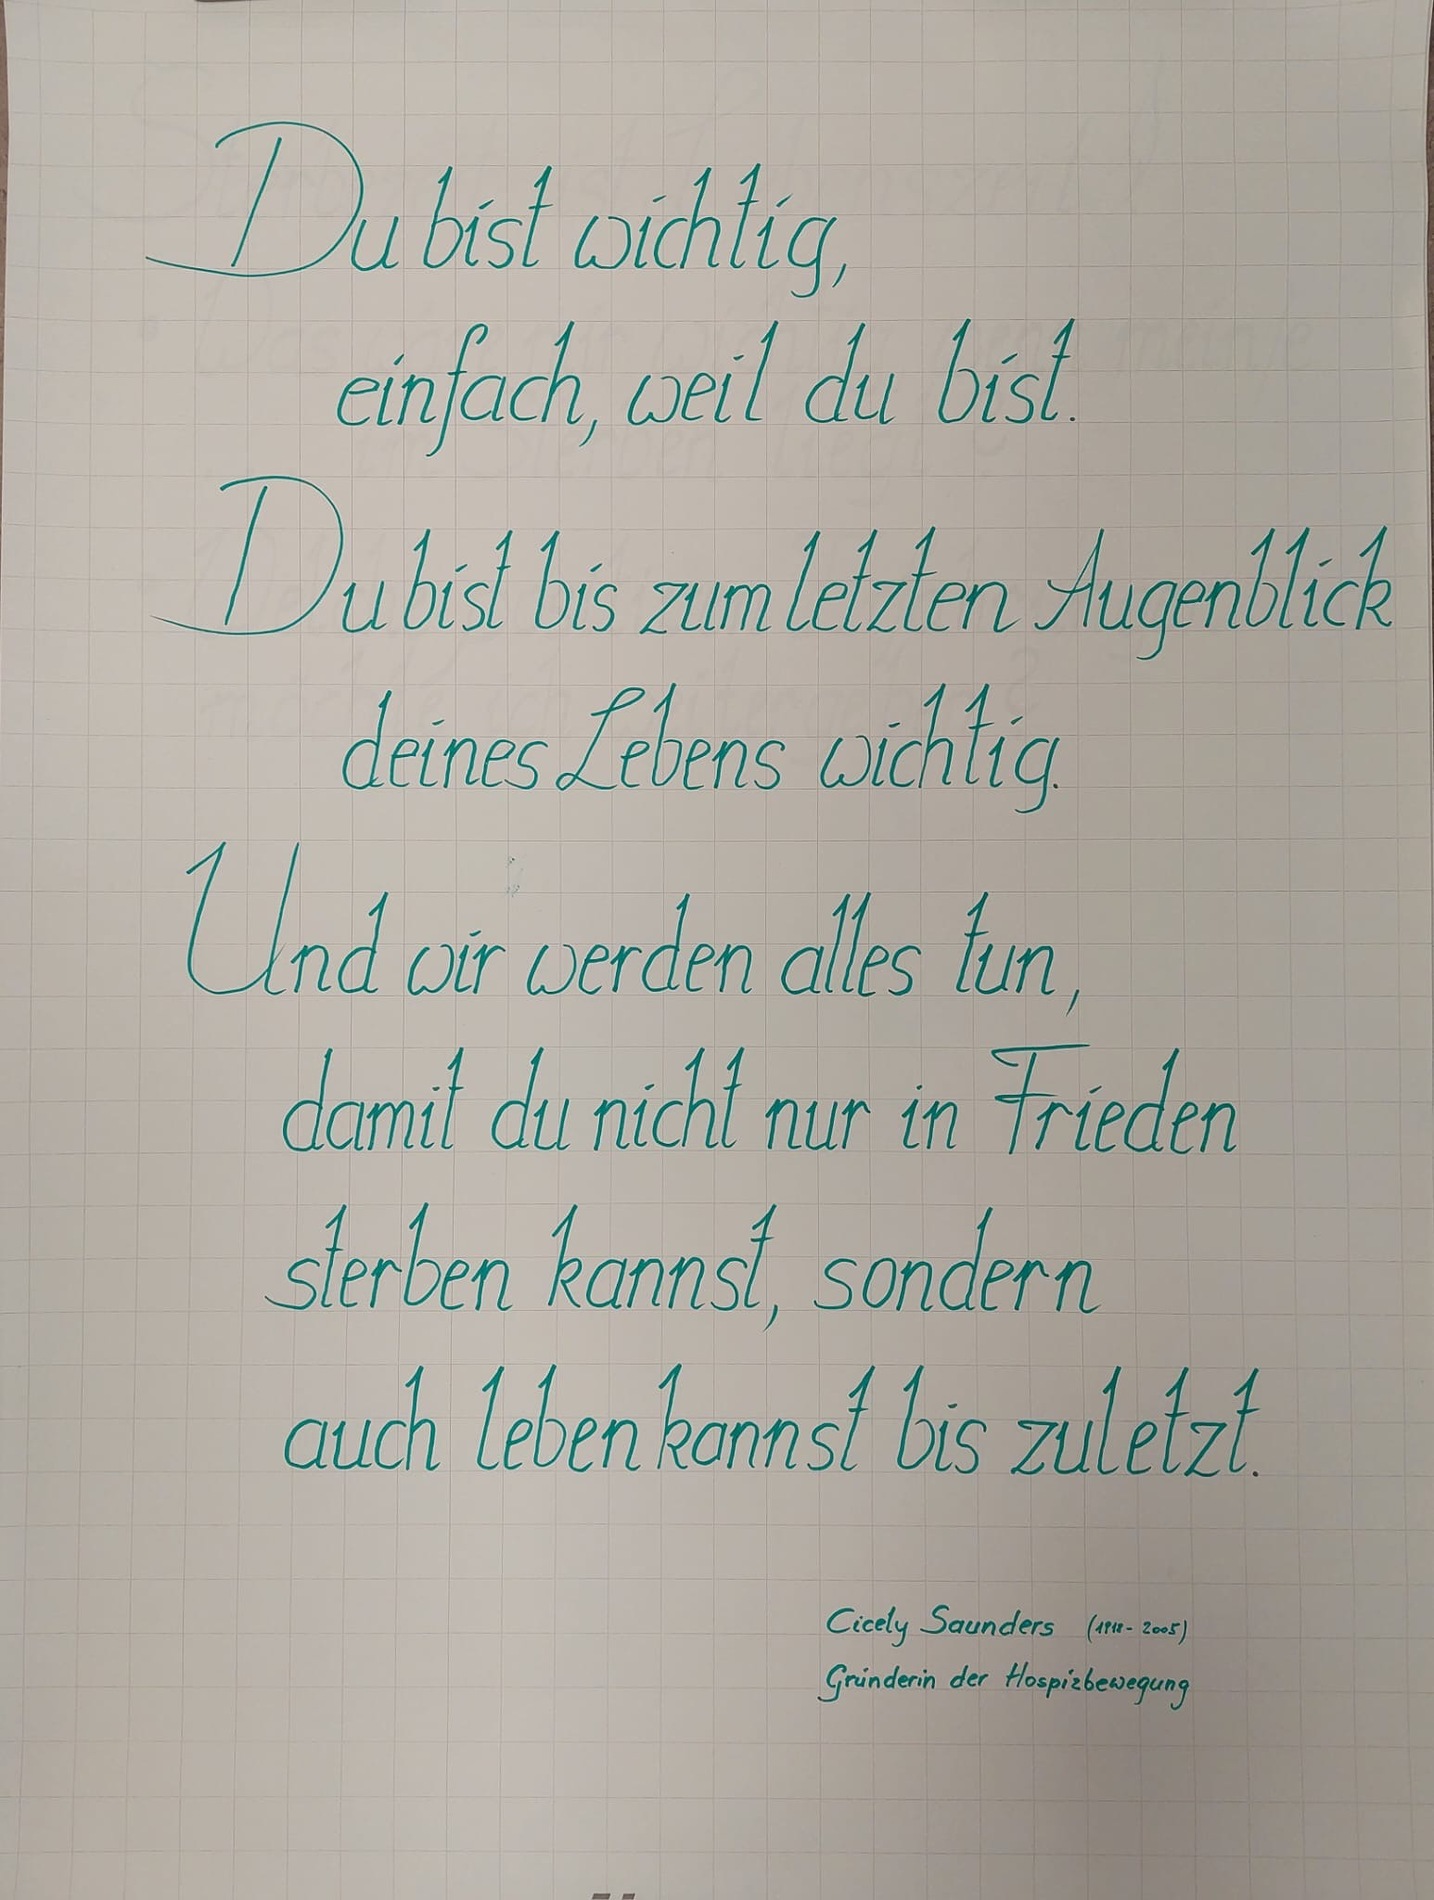 Du bist wichtig,
einfach, weil du bist.
Du bist bis zum letzten Augenblick
deines Lebens wichtig.
Und wir werden alles tun,
damit du nicht nur in Frieden
sterben kannst, sondern
auch leben kannst bis zuletzt.
Cicely Saunders (1918 - 2005)
Gründerin der Hospizbewegung